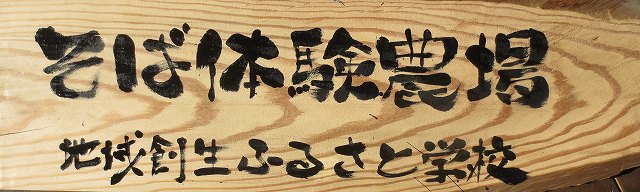 そば体験農場
地域創生ふるさと学校